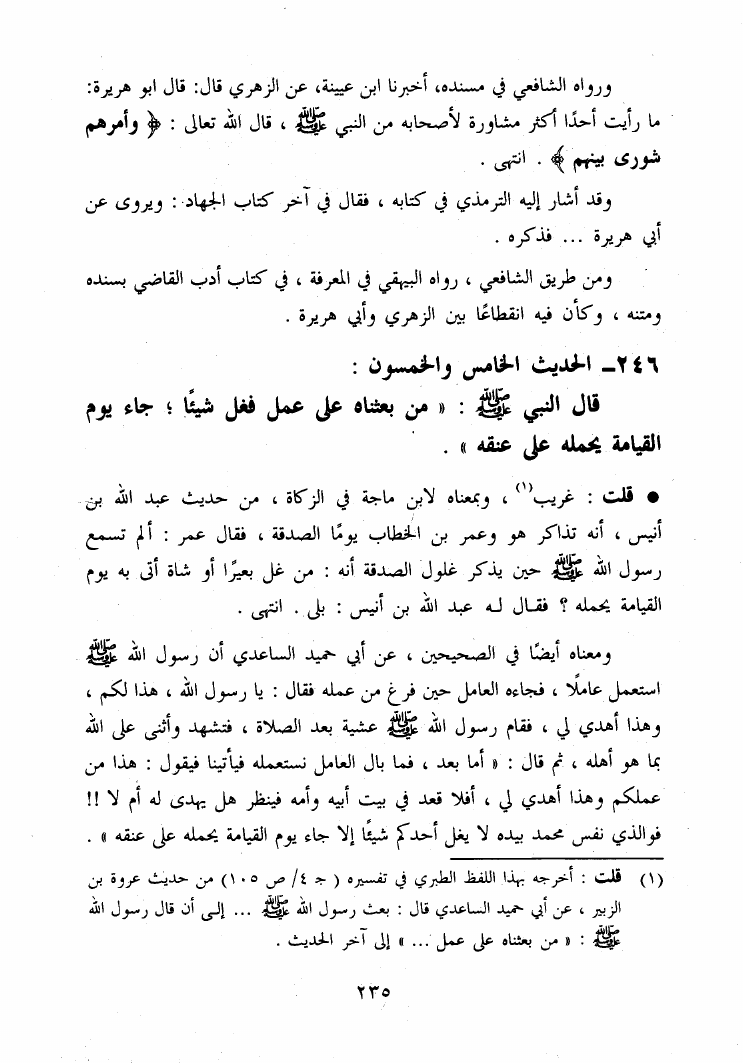 ورواه الشافعي في مسنده، أخبرنا ابن عيينة، عن الزهري قال: قال ابو هريرة:
ما رأيت أحدًا أكثر مشاورة لأصحابه من النبي ﷺ ، قال الله تعالى : ﴿ وأمرهم
شورى بينهم ﴾ . انتهى .
وقد أشار إليه الترمذي في كتابه ، فقال في آخر كتاب الجهاد : ويروى عن
أبي هريرة ... فذكره .
ومن طريق الشافعي ، رواه البيهقي في المعرفة ، في كتاب أدب القاضي بسنده
ومتنه ، وكأن فيه انقطاعًا بين الزهري وأبي هريرة .
٢٤٦ـ الحديث الخامس والخمسون :
قال النبي ﷺ : « من بعثناه على عمل فغل شيئًا ؛ جاء يوم
القيامة يحمله على عنقه » .
● قلت : غريب(١) ، وبمعناه لابن ماجة في الزكاة ، من حديث عبد الله بن
أنيس ، أنه تذاكر هو وعمر بن الخطاب يومًا الصدقة ، فقال عمر : ألم تسمع
رسول الله ﷺ حين يذكر غلول الصدقة أنه : من غل بعيرًا أو شاة أتى به يوم
القيامة يحمله ؟ فقال له عبد الله بن أنيس : بلى . انتهى .
ومعناه أيضًا في الصحيحين ، عن أبي حميد الساعدي أن رسول الله ﷺ
استعمل عاملًا ، فجاءه العامل حين فرغ من عمله فقال : يا رسول الله ، هذا لكم ،
وهذا أهدي لي ، فقام رسول الله ﷺ عشية بعد الصلاة ، فتشهد وأثنى على الله
بما هو أهله ، ثم قال : « أما بعد ، فما بال العامل نستعمله فيأتينا فيقول : هذا من
عملكم وهذا أهدي لي ، أفلا قعد في بيت أبيه وأمه فينظر هل يهدى له أم لا !!
فوالذي نفس محمد بيده لا يغل أحدكم شيئًا إلا جاء يوم القيامة يحمله على عنقه » .
(١) قلت : أخرجه بهذا اللفظ الطبري في تفسيره ( جـ ٤/ ص ١٠٥ ) من حديث عروة بن
الزبير ، عن أبي حميد الساعدي قال : بعث رسول الله ﷺ ... إلى أن قال رسول الله
ﷺ : « من بعثناه على عمل ... » إلى آخر الحديث .
٢٣٥